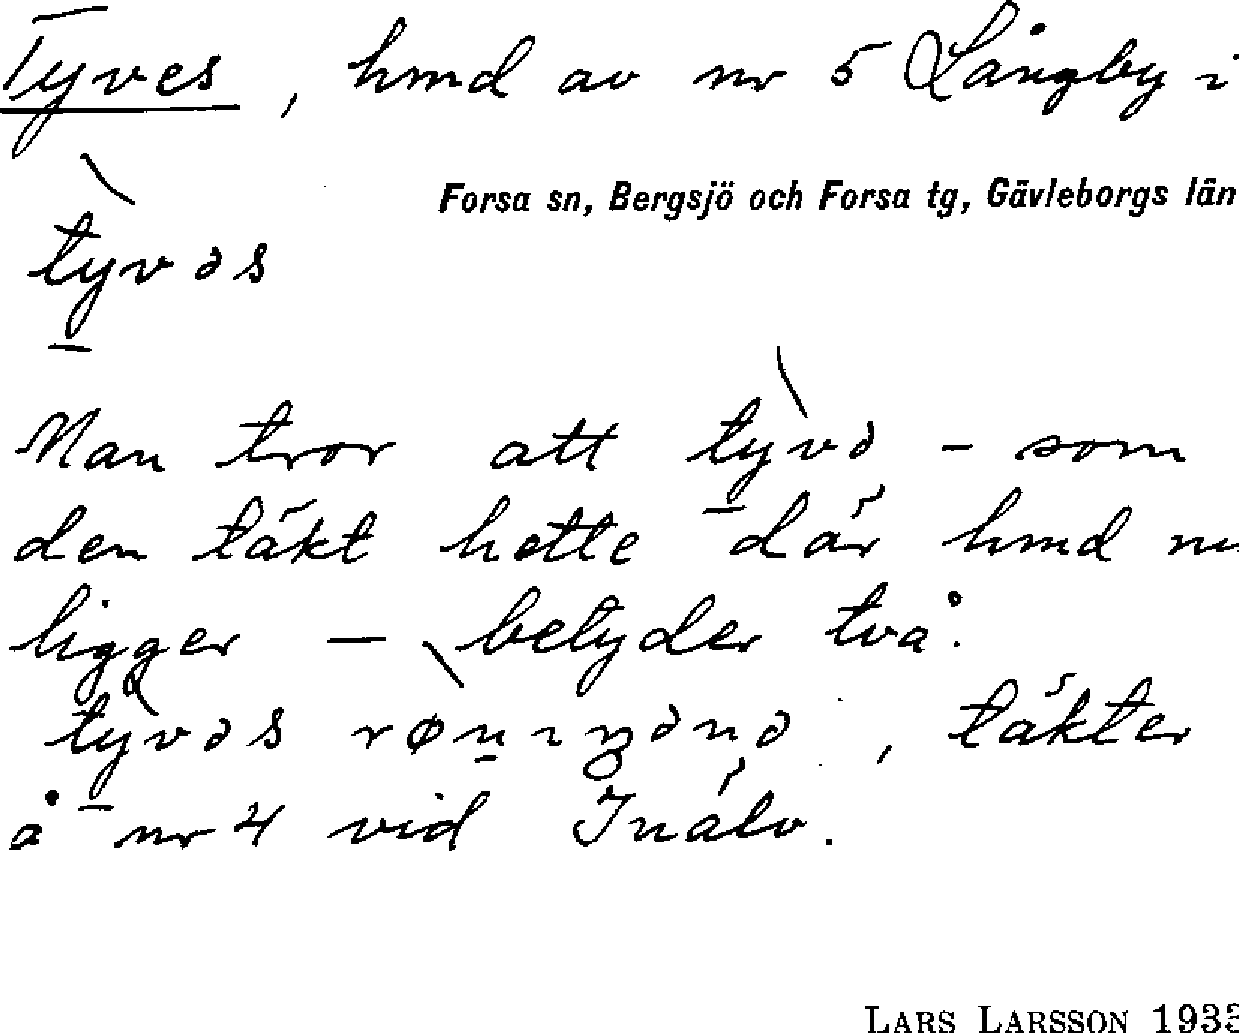 Tyves, hmd av nr 5 Långby i
Forsa sn, Bergsjö och Forsa tg, Gävleborgs län
tỳvəs
Man tror att tỳvə - som
den täkt hette där hmd nu
ligger — betyder två.
tỳvəs , täkter
å nr 4 vid Inälv.
LARS LARSSON 1935